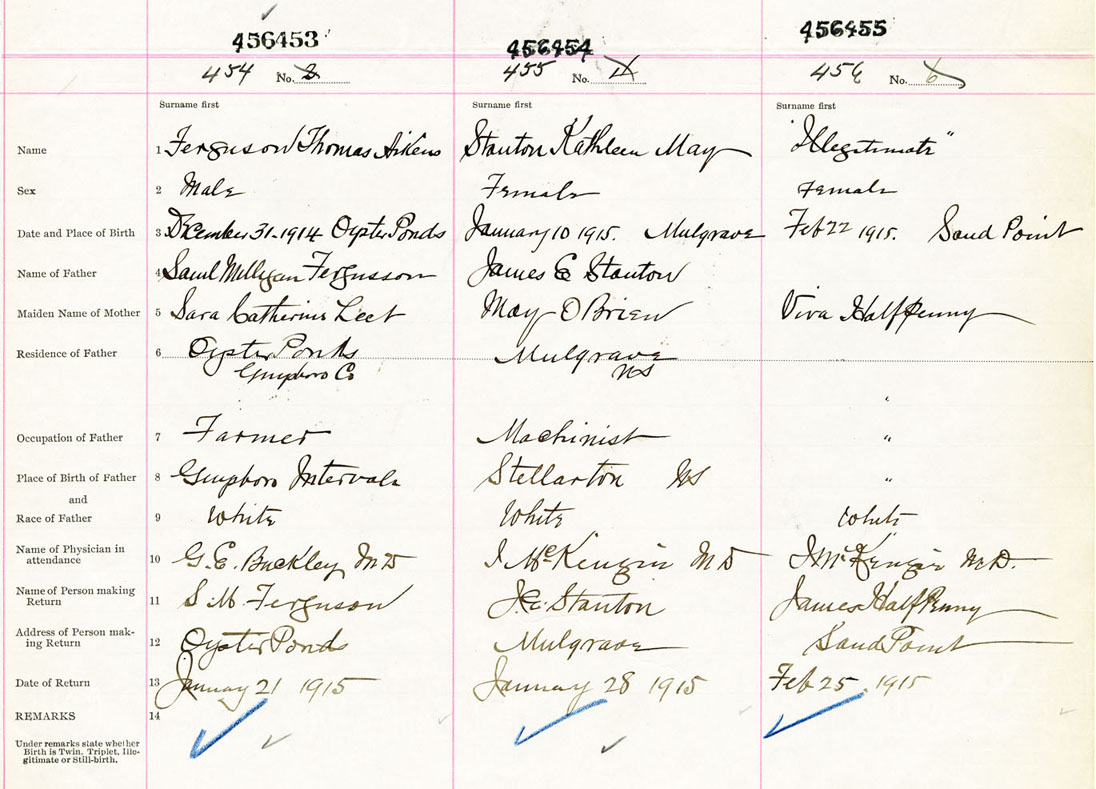 456453 456454 456455
454 No. 3 455 No. 4 456 No. 6
Surname first Surname first Surname first
Name 1 Ferguson Thomas Aikens Stanton Kathleen May "Illegitimate"
Sex 2 Male Female Female
Date and Place of Birth 3 December 31-1914 Oyster Ponds January 10 1915. Mulgrave Feb 22 1915. Sand Point
Name of Father 4 Saml Milligan Fergusson James E Stanton
Maiden Name of Mother 5 Sara Catherine Leet May O Brien Viva HalfPenny
Residence of Father 6 Oyster Ponds Mulgrave
Guysboro Co NS
"
Occupation of Father 7 Farmer Machinist "
Place of Birth of Father 8 Guysboro Intervale Stellarton NS "
and
Race of Father 9 White White White
Name of Physician in
attendance 10 G. E. Buckley MD J McKenzie MD J McKenzie M.D.
Name of Person making
Return 11 S M Ferguson J E Stanton James HalfPenny
Address of Person mak-
ing Return 12 Oyster Ponds Mulgrave Sand Point
Date of Return 13 January 21 1915 January 28 1915 Feb 25, 1915
REMARKS 14
Under remarks state whether
Birth is Twin. Triplet, Ille-
gitimate or Still-birth.